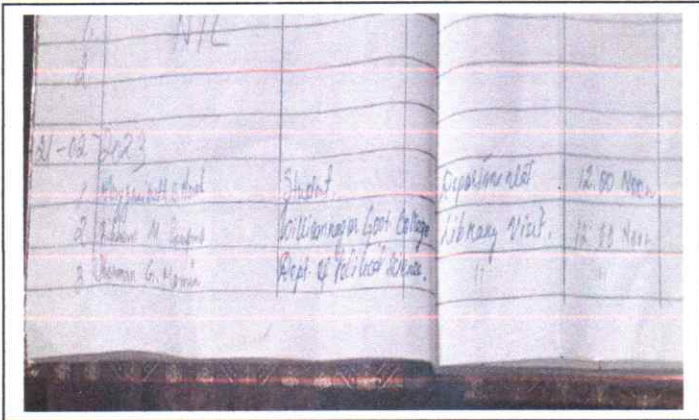 1.
NIL
2
21-02-2023
1 Student. Departmental 12.00 Noon
2 M. Williamnagar Govt. College Library Visit. 12.00 Noon
3 G. Momin Dept. of Political Science. " "